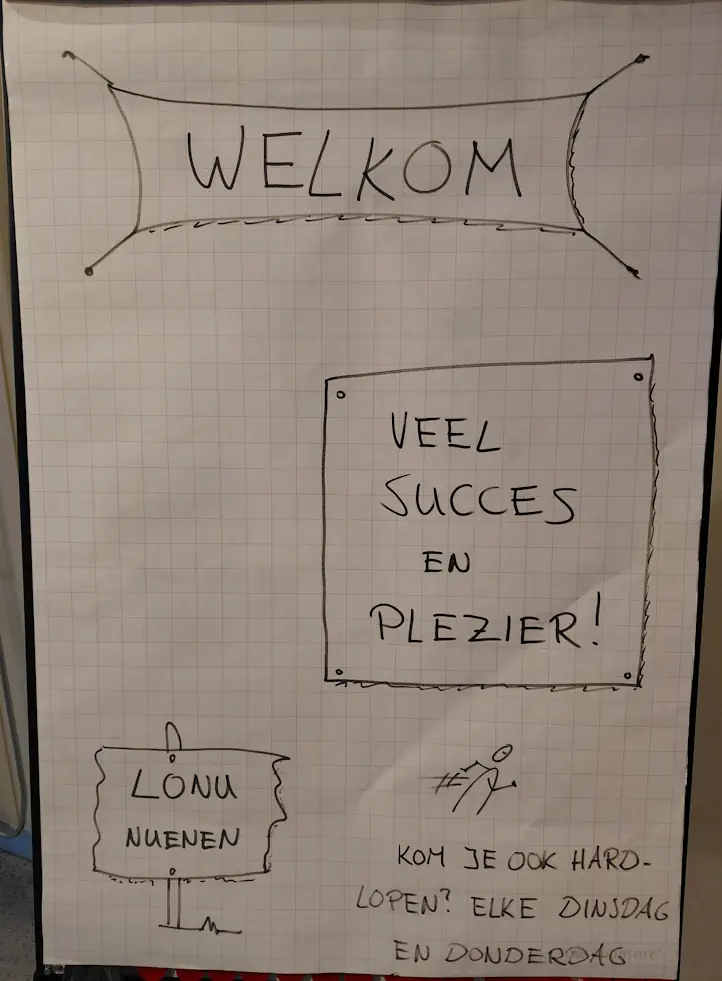 WELKOM
VEEL
SUCCES
EN
PLEZIER!
LONU
NUENEN
KOM JE OOK HARD-
LOPEN? ELKE DINSDAG
EN DONDERDAG